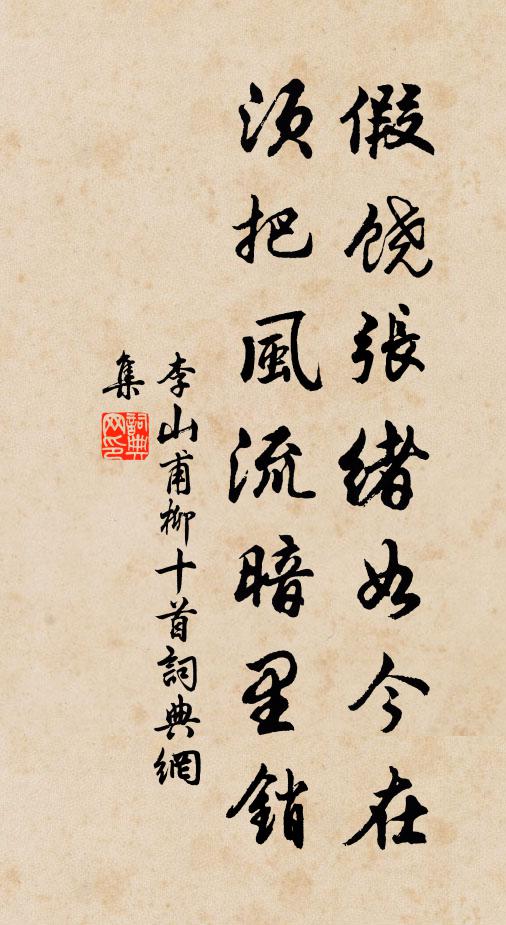 假饶張緒如今在
須把風流暗里銷
李山甫柳十首詞典網
集
詞典
网印